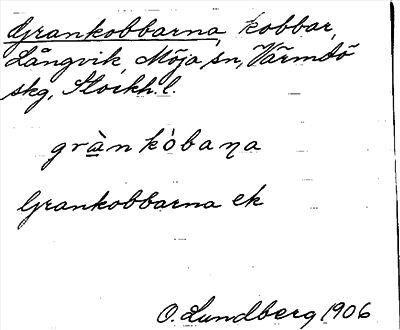 Grankobbarna, kobbar,
Långvik, Möja sn, Värmdö
skg, Stockh. l.
grànkòbaꞃa
Grankobbarna ek
O. Lundberg 1906